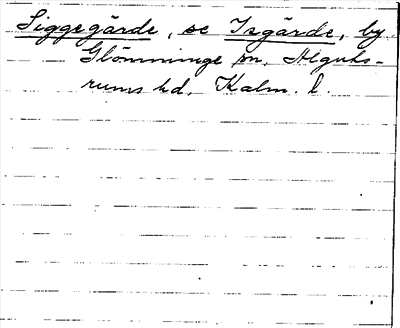 Siggegärde, se Isgärde, by
Glömminge sn, Alguts-
rums hd, Kalm. l.